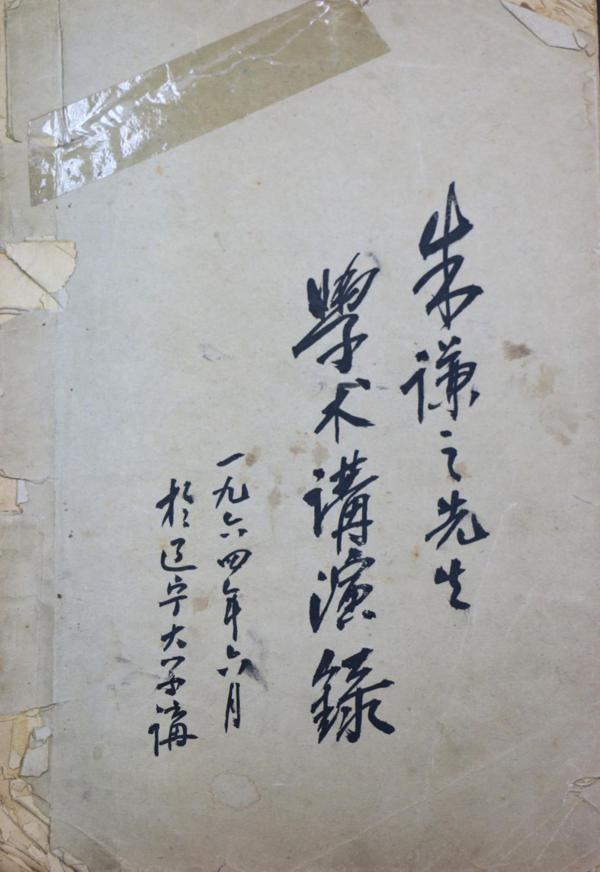 朱谦之先生
學术講演錄
一九六四年六月
於辽宁大学講